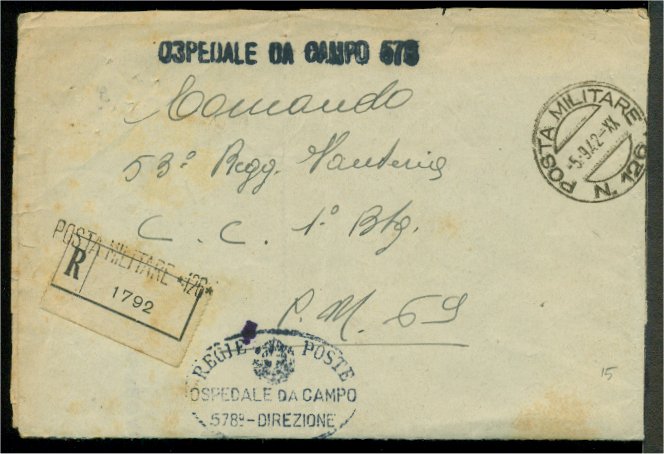 OSPEDALE DA CAMPO 578
Comando
53° Regg. Fanteria
C. C. 1° Btg.
P. M. 69
POSTA MILITARE
-5.9.42-XX
N. 126
POSTA MILITARE *126*
R
1792
REGIE POSTE
OSPEDALE DA CAMPO
578°-DIREZIONE
15